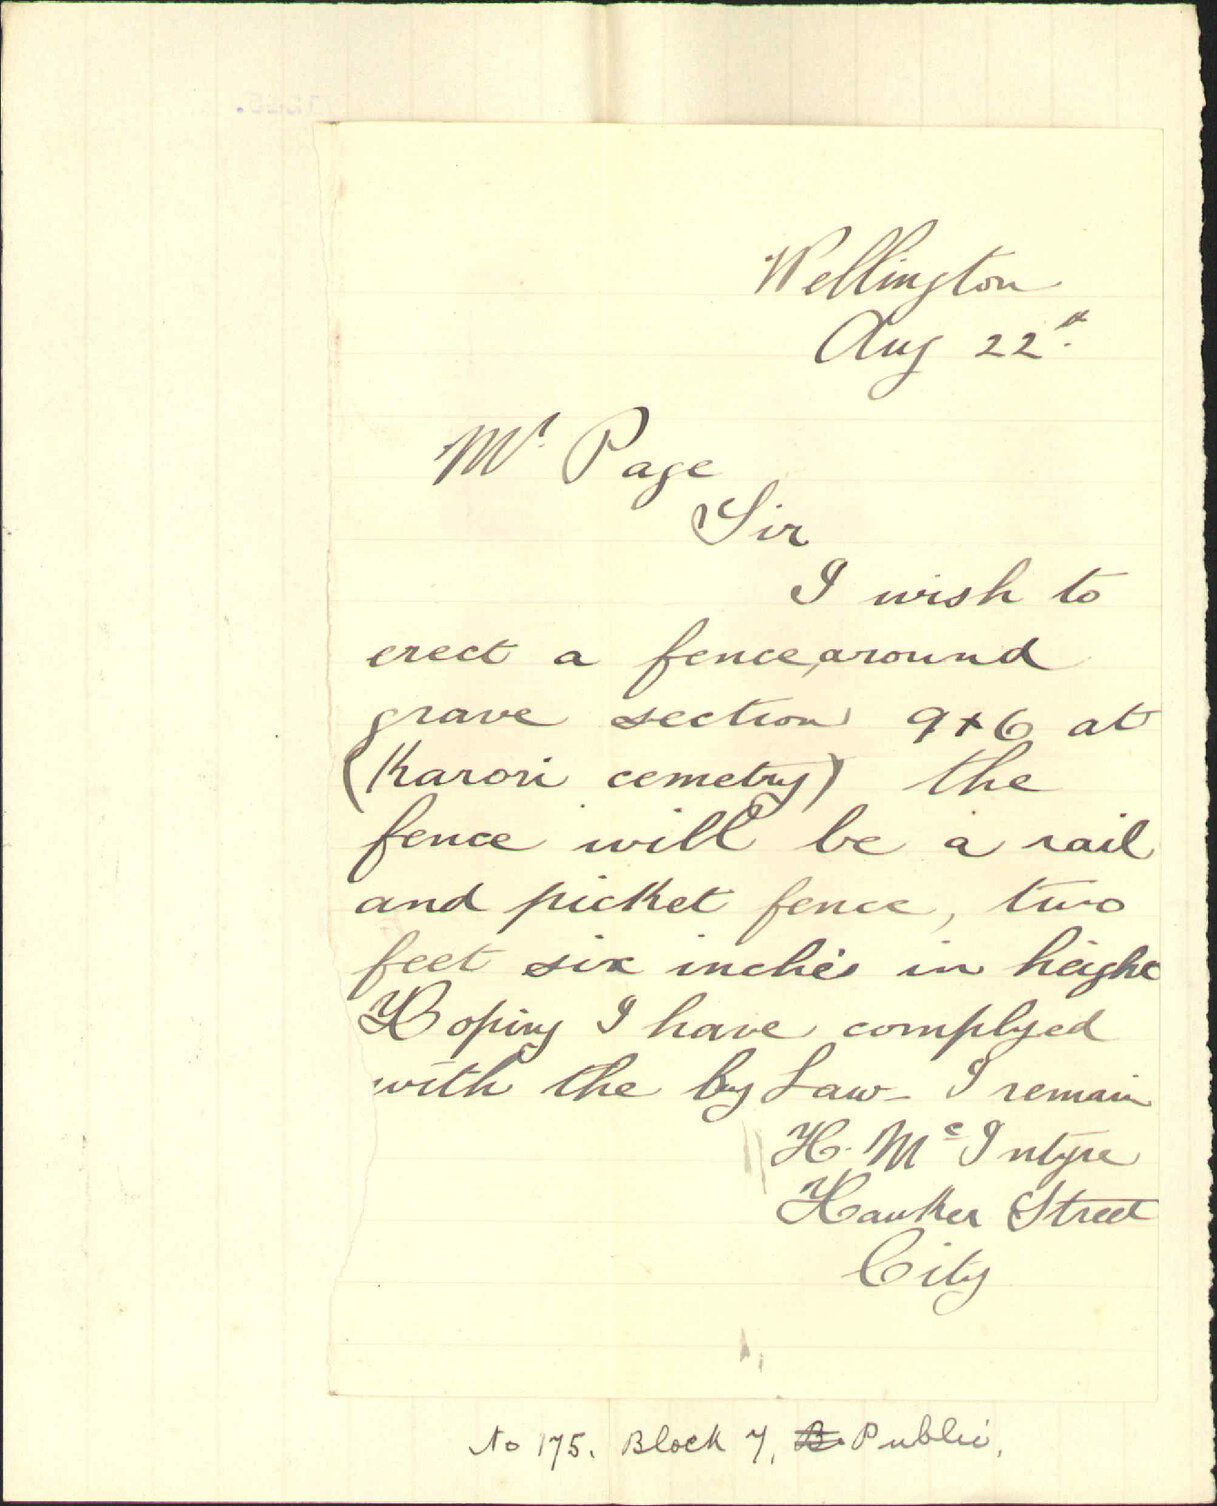 Wellington
Aug 22nd.
Mr. Page
Sir
I wish to
erect a fence, around
grave section 9x6 at
(Karori cemetry) the
fence will be a rail
and picket fence, two
feet six inches in height
Hoping I have complyed
with the by Law - I remain
H. Mc Intyre
Hawker Street
City
No 175. Block Y, B. Public.